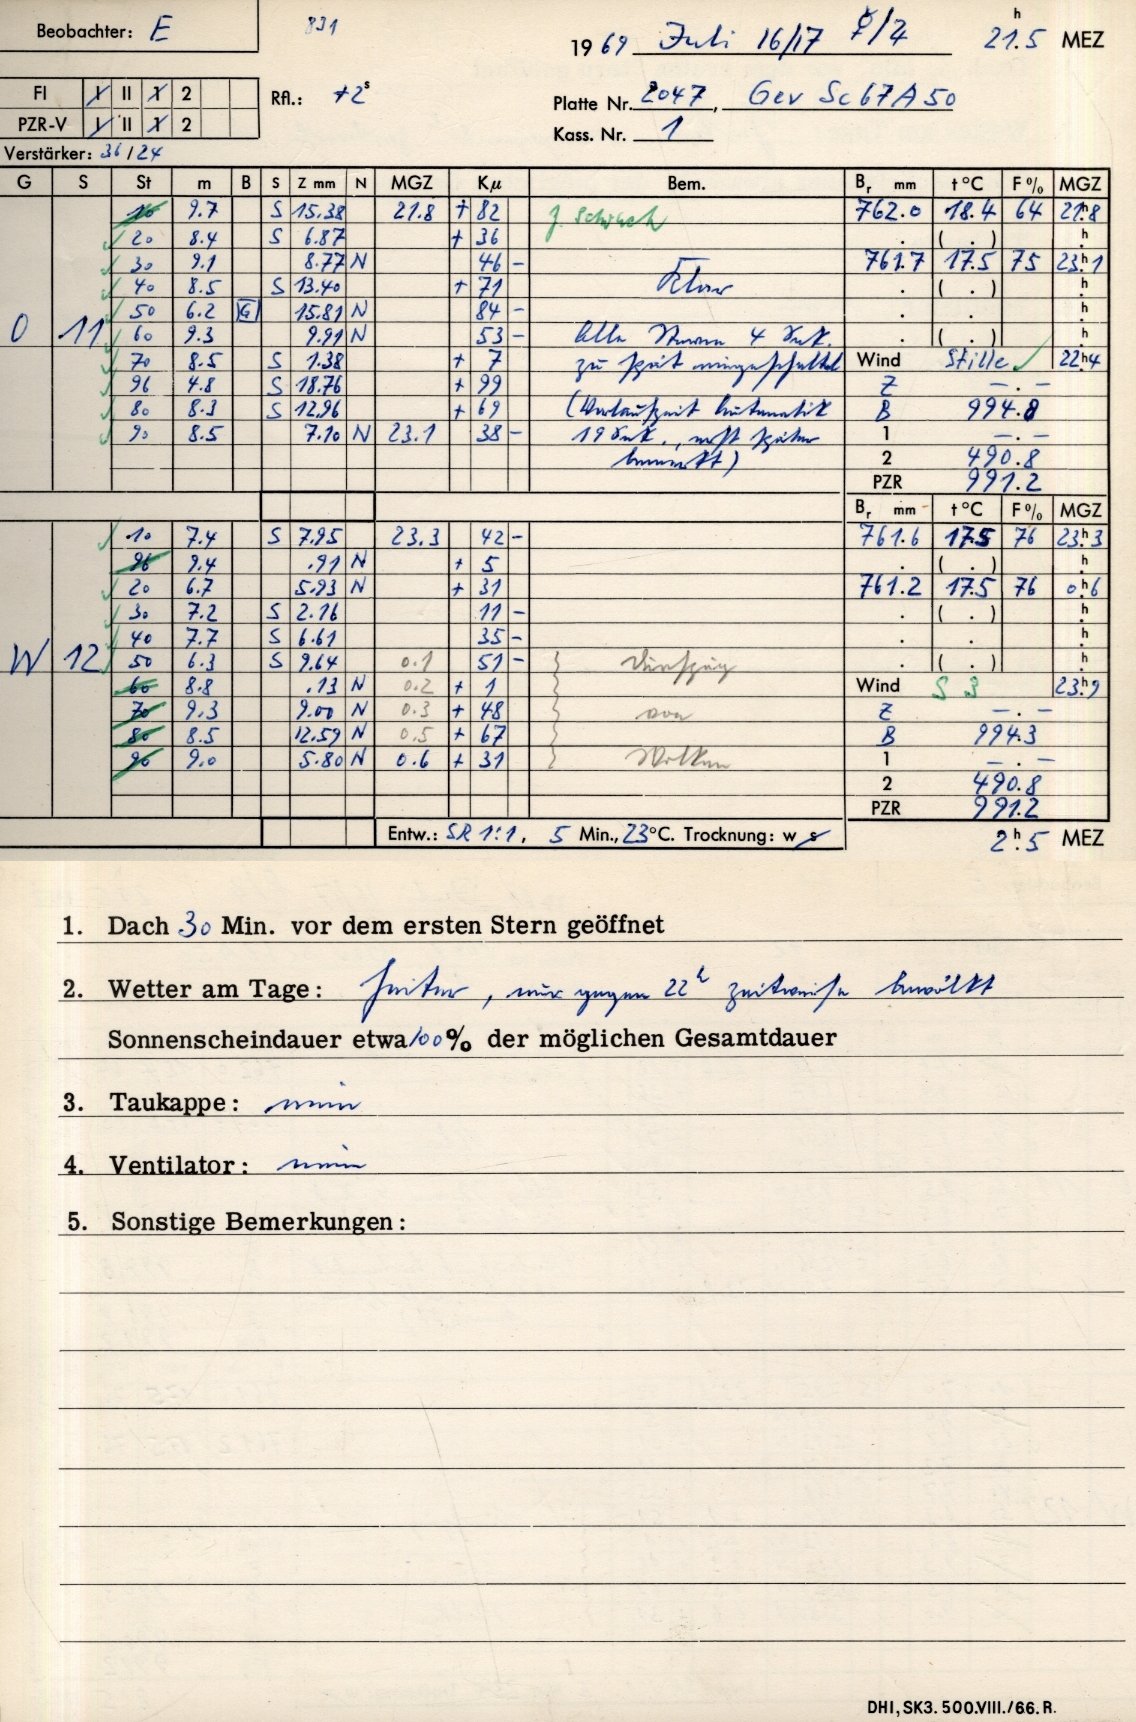 Beobachter: E
831
1969 Juli 16/17 ☿/♃ 21.5 h MEZ
FI I II 1 2
Rfl.: +2 s
Platte Nr. 2047, Gev Sc67A50
PZR-V I II 1 2
Kass. Nr. 1
Verstärker: 36/24
G S St m B S Z mm N MGZ Kμ Bem. Br mm t °C F % MGZ
10 9.7 S 15.38 21.8 + 82 z. schwach 762.0 18.4 64 21h.8
20 8.4 S 6.87 + 36 . ( . ) h.
30 9.1 8.77 N 46 - 761.7 17.5 75 23h.1
40 8.5 S 13.40 + 71 Klar . ( . ) h.
50 6.2 G 15.81 N 84 - . . h.
O 11 60 9.3 9.91 N 53 - Alle Sterne 4 Sek. . ( . ) h.
70 8.5 S 1.38 + 7 zu spät eingeschaltet Wind Stille 22h4
96 4.8 S 18.76 + 99 Z -.-
80 8.3 S 12.96 + 69 (Vorlaufzeit Automatik B 994.8
90 8.5 7.10 N 23.1 38 - 19 Sek., erst später 1 -.-
bemerkt) 2 490.8
PZR 991.2
Br mm t °C F % MGZ
10 7.4 S 7.95 23.3 42 - 761.6 17.5 76 23h.3
96 9.4 .91 N + 5 . ( . ) h.
20 6.7 5.93 N + 31 761.2 17.5 76 0h.6
30 7.2 S 2.16 11 - . ( . ) h.
40 7.7 S 6.61 35 - . . h.
W 12 50 6.3 S 9.64 0.1 51 - Durchzug . ( . ) h.
60 8.8 .13 N 0.2 + 1 Wind S 3 23h9
70 9.3 9.00 N 0.3 + 48 von Z -.-
80 8.5 12.59 N 0.5 + 67 B 994.3
90 9.0 5.80 N 0.6 + 31 Wolken 1 -.-
2 490.8
PZR 991.2
Entw.: SR 1:1, 5 Min., 23°C. Trocknung: w s 2h.5 MEZ
1. Dach 30 Min. vor dem ersten Stern geöffnet
2. Wetter am Tage: heiter, nur gegen 22h zeitweise bewölkt
Sonnenscheindauer etwa 100% der möglichen Gesamtdauer
3. Taukappe: nein
4. Ventilator: nein
5. Sonstige Bemerkungen:
DHI, SK3. 500.VIII./66. R.